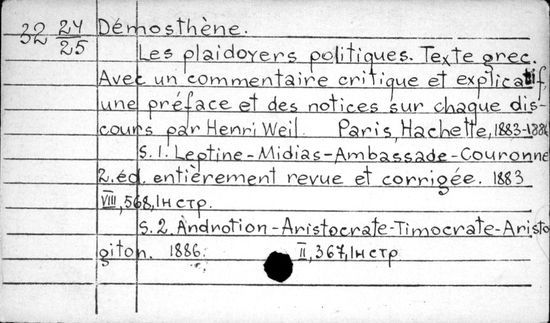 32 24/25 Démosthène.
Les plaidoyers politiques. Texte grec.
Avec un commentaire critique et explicatif,
une préface et des notices sur chaque dis-
cours par Henri Weil. Paris, Hachette, 1883-1886
S. 1. Leptine-Midias-Ambassade-Couronne
2. éd. entièrement revue et corrigée. 1883
VIII, 568, 1 н стр.
S. 2. Androtion-Aristocrate-Timocrate-Aristo
giton. 1886. II, 367, 1 н стр